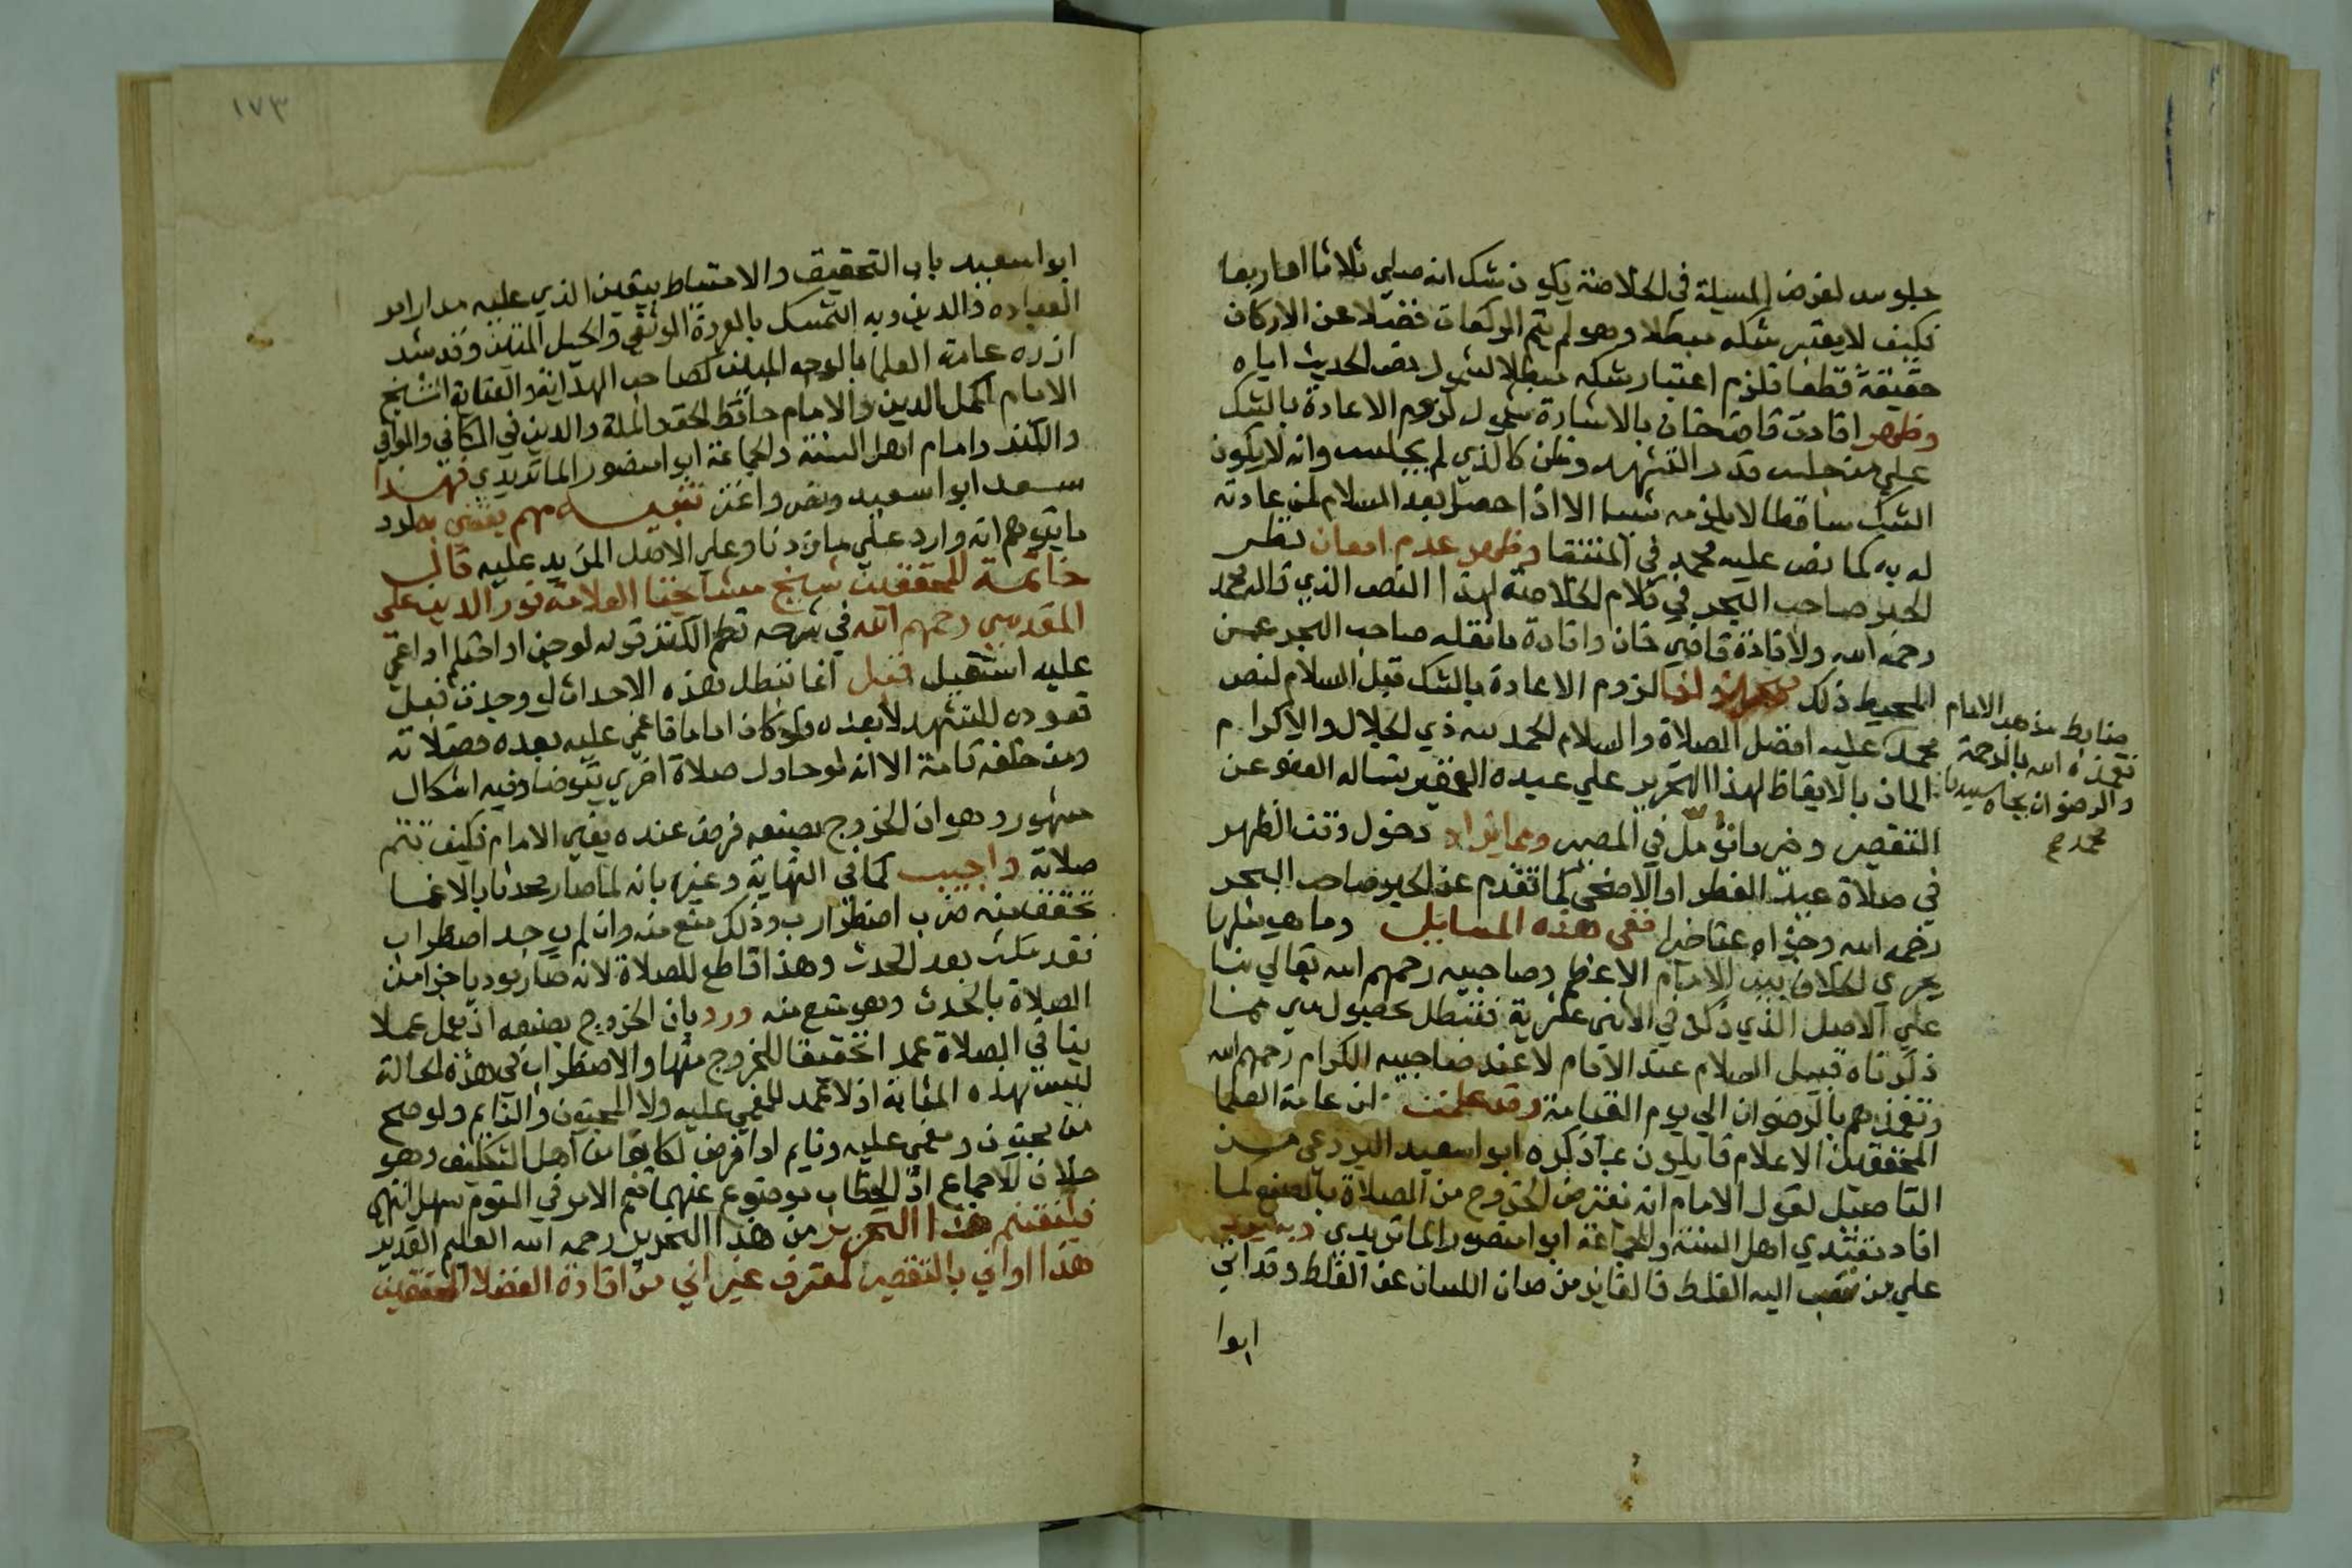 جلوس لفرض المسيلة في الخلاصة يكون شك انه صلي ثلاثا اواربعا
فكيف لا يعتبر شكه مبطلا وهو لم يتم الركعات فضلا عن الاركان
حقيقة قطعا فلزم اعتبار شكه مبطلا لشمول نص الحديث اياه
وظهر افادت قاضيخان بالاشارة شمول لزوم الاعادة بالشك
علي من جلس قدر التشهد وظن كالذي لم يجلس وانه لا يكون
الشك ساقطا لا يلزمه شيا الا اذا حصل بعد السلام لمن عادته
له به كما نص عليه محمد في المنتقا وظهر عدم امعان نظر
الحبر صاحب البحر في كلام الخلاصة لهذا النص الذي قاله محمد
رحمه الله ولافادة قاضي خان وافادة ما نقله صاحب البحر عن
المحيط ذلك لزوم الاعادة بالشك قبل السلام لنص
محمد عليه افضل الصلاة والسلام الحمد لله ذي الجلال والاكرام
المان بالايقاظ لهذا التحرير علي عبده الفقير يساله العفو عن
التقصير وخير ما نؤمل في المصير ومما يزاد دخول وقت الظهر
في صلاة عيد الفطر او الاضحي كما تقدم عن الحبر صاحب البحر
رحمه الله وجزاه عنا خيرا ففي هذه المسايل وما هي مثلها
يجري الخلاف بين الامام الاعظم وصاحبيه رحمهم الله تعالي بنا
علي الاصل الذي ذكر في الاثني عشرية فتبطل بحصول شي مما
ذكرناه قبل السلام عند الامام لا عند صاحبيه الكرام رحمهم الله
وتغمدهم بالرضوان الي يوم القيامة وقد علمت ان عامة العلما
المحققين الاعلام قايلون بما ذكره ابو اسعيد البردعي من
التاصيل لقول الامام انه يفترض الخروج من الصلاة بالصنع لما
افاد مقتدي اهل السنة والجماعة ابو امنصور الماتريدي
علي من نسب اليه الغلط فالفايز من صان اللسان عن الغلط وقد اتي
ابوا
ضابط مذهب الامام
تغمده الله بالرحمة
والرضوان بجاه سيدنا
محمد
١٧٣
ابو اسعيد باب التحقيق والاحتياط بيقين الذي عليه مدار امر
العباده فالدين وبه التمسك بالعروة الوثقي والحبل المتين وقد شد
ازره عامة العلما بالوجه المبين كصاحب الهداية والعناية الشيخ
الامام اكمل الدين والامام حافظ الحق والملة والدين في الكافي والوافي
والكنز وامام اهل السنة والجماعة ابو امنصور الماتريدي فبهذا
سعد ابو اسعيد ونص واعتز تنبيه مهم يعتني بطرد
ما يتوهم انه وارد علي ما قررنا وعلي الاصل المزيد عليه قال
خاتمة المحققين شيخ مشايخنا العلامة نور الدين علي
المقدسي رحمهم الله في شرحه نظم الكنز قوله لو جن او احتلم او اغمي
عليه استقبل قيل انما تبطل بهذه الاحداث لو وجدت قبل
قعوده للتشهد لا بعده ولو كان اماما فاغمي عليه بعده فصلاته
ومن خلفه تامة الا انه لو حاول صلاة اخري يتوضا وفيه اشكال
مشهور وهو ان الخروج بصنعه فرض عنده يعني الامام فكيف تتم
صلاته واجيب كما في النهاية وغيره بانه لما صار محدثا بالاغما
تحقق منه ضرب اضطراب وذلك صنع منه وان لم يوجد اضطراب
فقد مكث بعد الحدث وهذا قاطع للصلاة لانه صار مؤديا جزا من
الصلاة بالحدث وهو صنع منه ورد بان الخروج بصنعه ان يعمل عملا
ينافي الصلاة عمدا تحقيقا للخروج منها والاضطراب في هذه الحالة
ليس بهذه المثابة اذ لا عمد للمغمي عليه ولا المجنون والنايم ولو صح
من مجنون ومغمي عليه ونايم ادا فرض لكانوا من اهل التكليف وهو
خلاف الاجماع اذ الخطاب موضوع عنهما نعم الامر في النوم سهل انتهي
فليغتنم هذا التحرير من هذا النحرير رحمه الله العليم القدير
هذا اواني بالتقصير لمعترف غير اني من افادة الفضلا المحققين